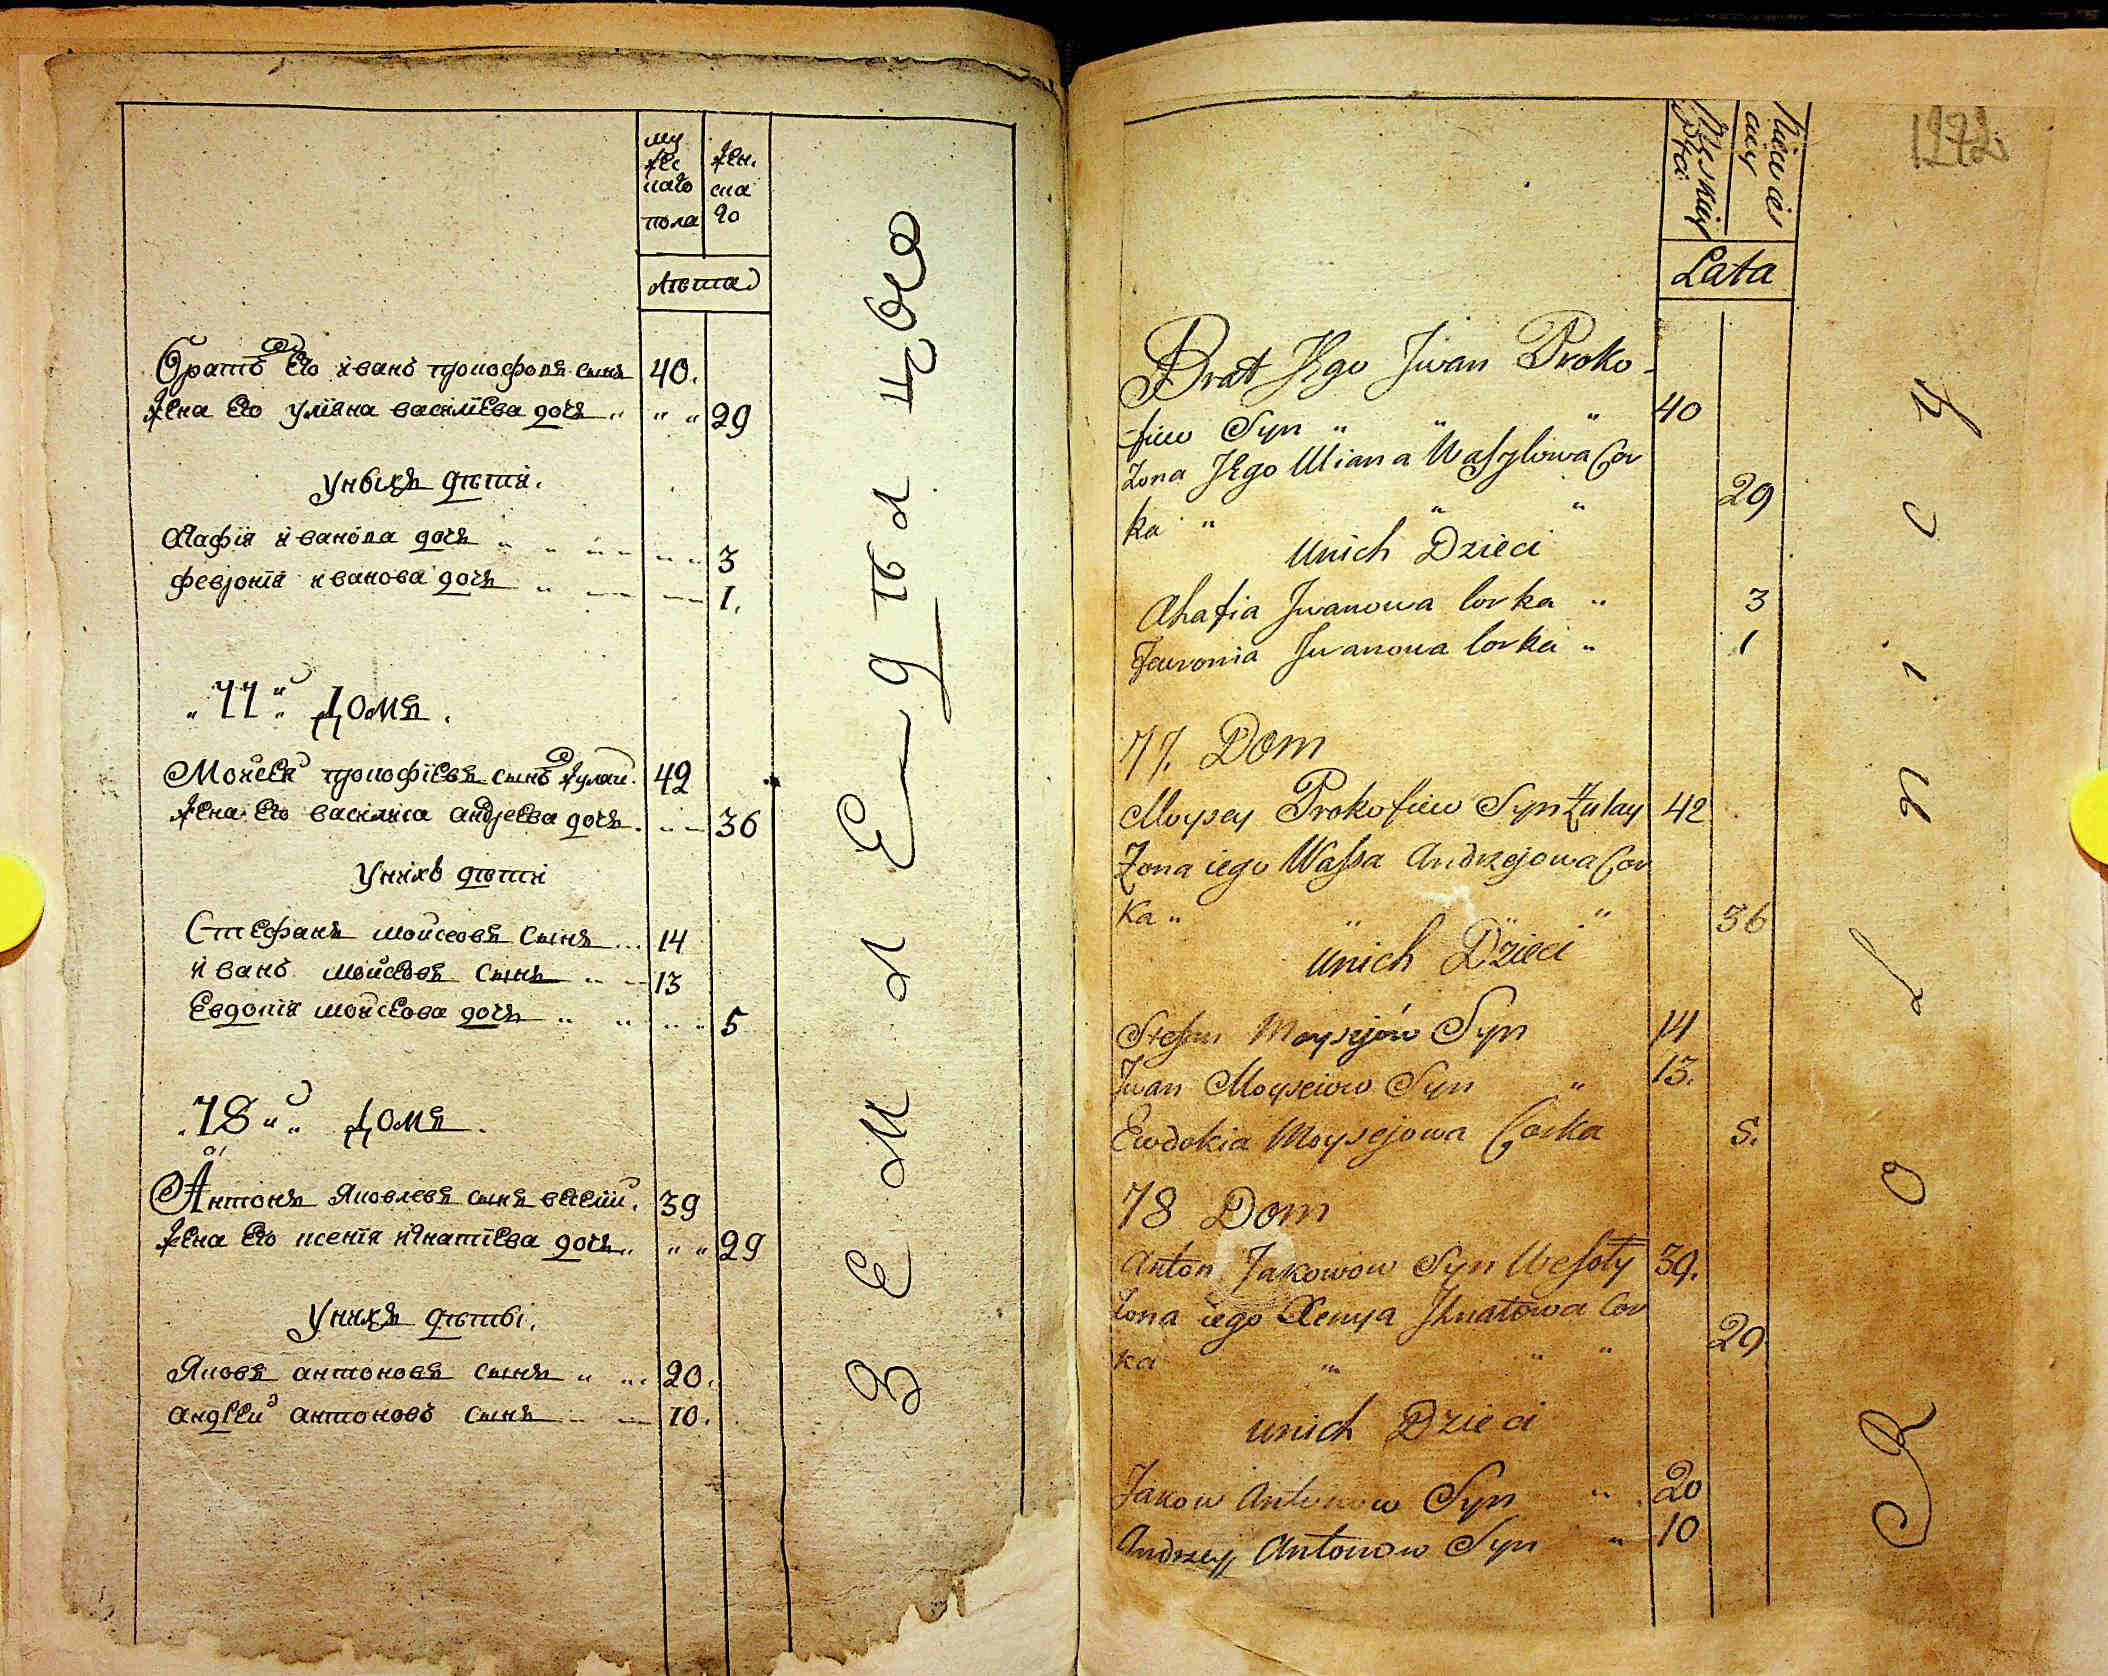 му
жес
каго
пола
жен.
ска
го
лѣта
братъ Его ивань прокофовъ сынъ 40.
жена Его улїяна василїева дочь " " " 29
унихъ дѣти.
Агафїя иванова дочь " " 3
февронїя иванова дочь " 1.
" 77 " Домъ.
Моисей прокофїевъ сынъ жулай. 42
жена Его василиса андреева дочь. 36
унихъ дѣти
Стефанъ моисеовъ сынъ 14
иванъ моисеовъ сынъ 13
Евдокїя моисеова дочь " " 5
. 78 " " Домъ.
Антонъ яковлевъ сынъ веселий. 39
жена Его ксенїя игнатїева дочь " " " 29
унихъ дѣты.
яковъ антоновъ сынъ " 20.
андрей антоновъ сынъ 10.
земледѣлцовъ
1272.
Męskiey
Płci
Niewies
ciey
Lata
Brat Jego Jwan Proko-
-fiew Syn " " " 40
Zona Jego Uliana Wasylowa Cor
ka " " " 29
Unich Dzieci
Ahafia Jwanowa Corka " 3
Fewronia Jwanowa Corka " 1
77. Dom
Moysey Prokofiew Syn Żulay 42
Zona iego Wassa Andrzejowa Cor
ka " " " 36
Unich Dzieci
Stefan Moysejów Syn 14
Jwan Moyseiow Syn " 13.
Ewdokia Moysejowa Corka 5.
78 Dom
Anton Jakowow Syn Wesoły 39.
Zona iego Xenya Jhnatowa Cor
ka " " " 29
unich Dzieci
Jakow Antonow Syn " 20
Andrzey Antonow Syn " 10
Rolnicy